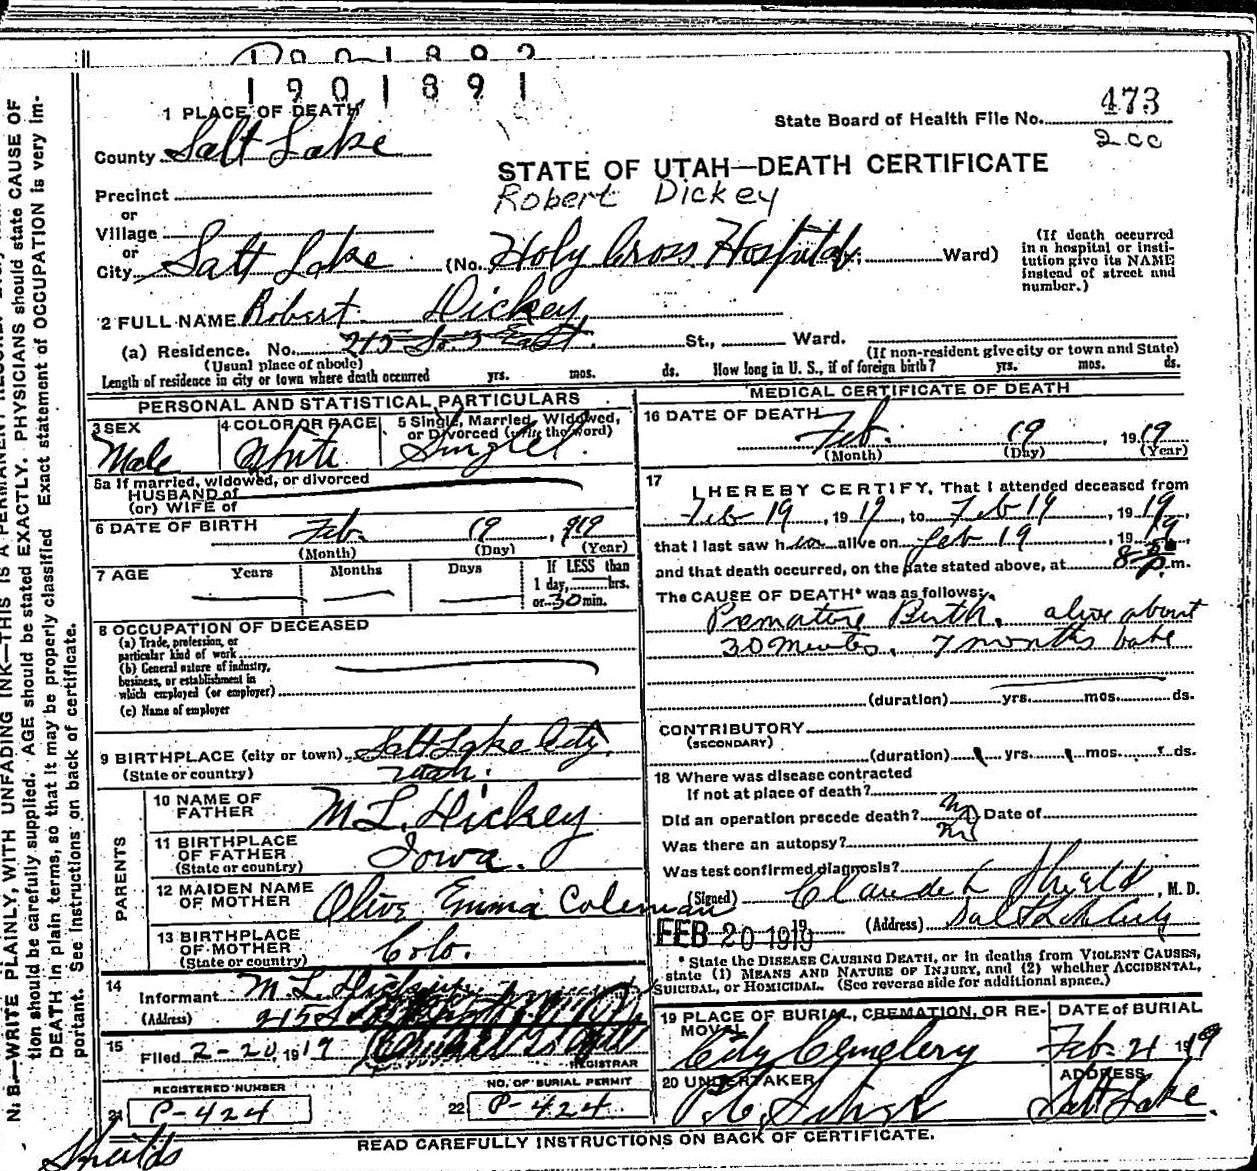 1901892
1901891
1 PLACE OF DEATH
County Salt Lake
State Board of Health File No. 473
2 cc
STATE OF UTAH—DEATH CERTIFICATE
Robert Dickey
Precinct
or
Village
or
City Salt Lake (No. Holy Cross Hospital. Ward)
(If death occurred in a hospital or institution give its NAME instead of street and number.)
2 FULL NAME Robert Dickey
(a) Residence. No. 215 So. 3 East. St., Ward.
(Usual place of abode) (If non-resident give city or town and State)
Length of residence in city or town where death occurred yrs. mos. ds. How long in U. S., if of foreign birth? yrs. mos. ds.
PERSONAL AND STATISTICAL PARTICULARS
3 SEX Male
4 COLOR OR RACE White
5 Single, Married, Widowed, or Divorced (write the word) Single
5a If married, widowed, or divorced
HUSBAND of
(or) WIFE of
6 DATE OF BIRTH Feb. 19, 919
(Month) (Day) (Year)
7 AGE Years Months Days If LESS than
1 day, hrs.
or 30 min.
8 OCCUPATION OF DECEASED
(a) Trade, profession, or
particular kind of work
(b) General nature of industry,
business, or establishment in
which employed (or employer)
(c) Name of employer
9 BIRTHPLACE (city or town) Salt Lake City,
(State or country) Utah.
PARENTS
10 NAME OF FATHER M L. Dickey
11 BIRTHPLACE OF FATHER (State or country) Iowa.
12 MAIDEN NAME OF MOTHER Olive Emma Coleman
13 BIRTHPLACE OF MOTHER (State or country) Colo.
14
Informant M. L. Dickey
(Address)
15
Filed 2-20, 1919
REGISTRAR
REGISTERED NUMBER
21 P-424
NO. OF BURIAL PERMIT
22 P-424
MEDICAL CERTIFICATE OF DEATH
16 DATE OF DEATH Feb. 19, 1919
(Month) (Day) (Year)
17
I HEREBY CERTIFY, That I attended deceased from
Feb 19, 1919, to Feb 19, 1919,
that I last saw him alive on Feb 19, 1919
and that death occurred, on the date stated above, at 8 P.m.
The CAUSE OF DEATH* was as follows:
Premature Birth. alive about
30 Minutes. 7 months babe
(duration) yrs. mos. ds.
CONTRIBUTORY
(SECONDARY)
(duration) yrs. mos. ds.
18 Where was disease contracted
If not at place of death?
Did an operation precede death? No Date of
Was there an autopsy? No
Was test confirmed diagnosis?
(Signed) Claude L Shields, M. D.
FEB 20 1919 19 (Address) Salt Lake City
* State the DISEASE CAUSING DEATH, or in deaths from VIOLENT CAUSES,
state (1) MEANS AND NATURE OF INJURY, and (2) whether ACCIDENTAL,
SUICIDAL, or HOMICIDAL. (See reverse side for additional space.)
19 PLACE OF BURIAL, CREMATION, OR REMOVAL
City Cemetery
DATE OF BURIAL
Feb. 21 1919
20 UNDERTAKER
ADDRESS
Salt Lake.
READ CAREFULLY INSTRUCTIONS ON BACK OF CERTIFICATE.
Shields
N. B.—WRITE PLAINLY, WITH UNFADING INK—THIS IS A PERMANENT RECORD.
tion should be carefully supplied. AGE should be stated EXACTLY. PHYSICIANS should state CAUSE OF
DEATH in plain terms, so that it may be properly classified Exact statement of OCCUPATION is very im-
portant. See Instructions on back of certificate.